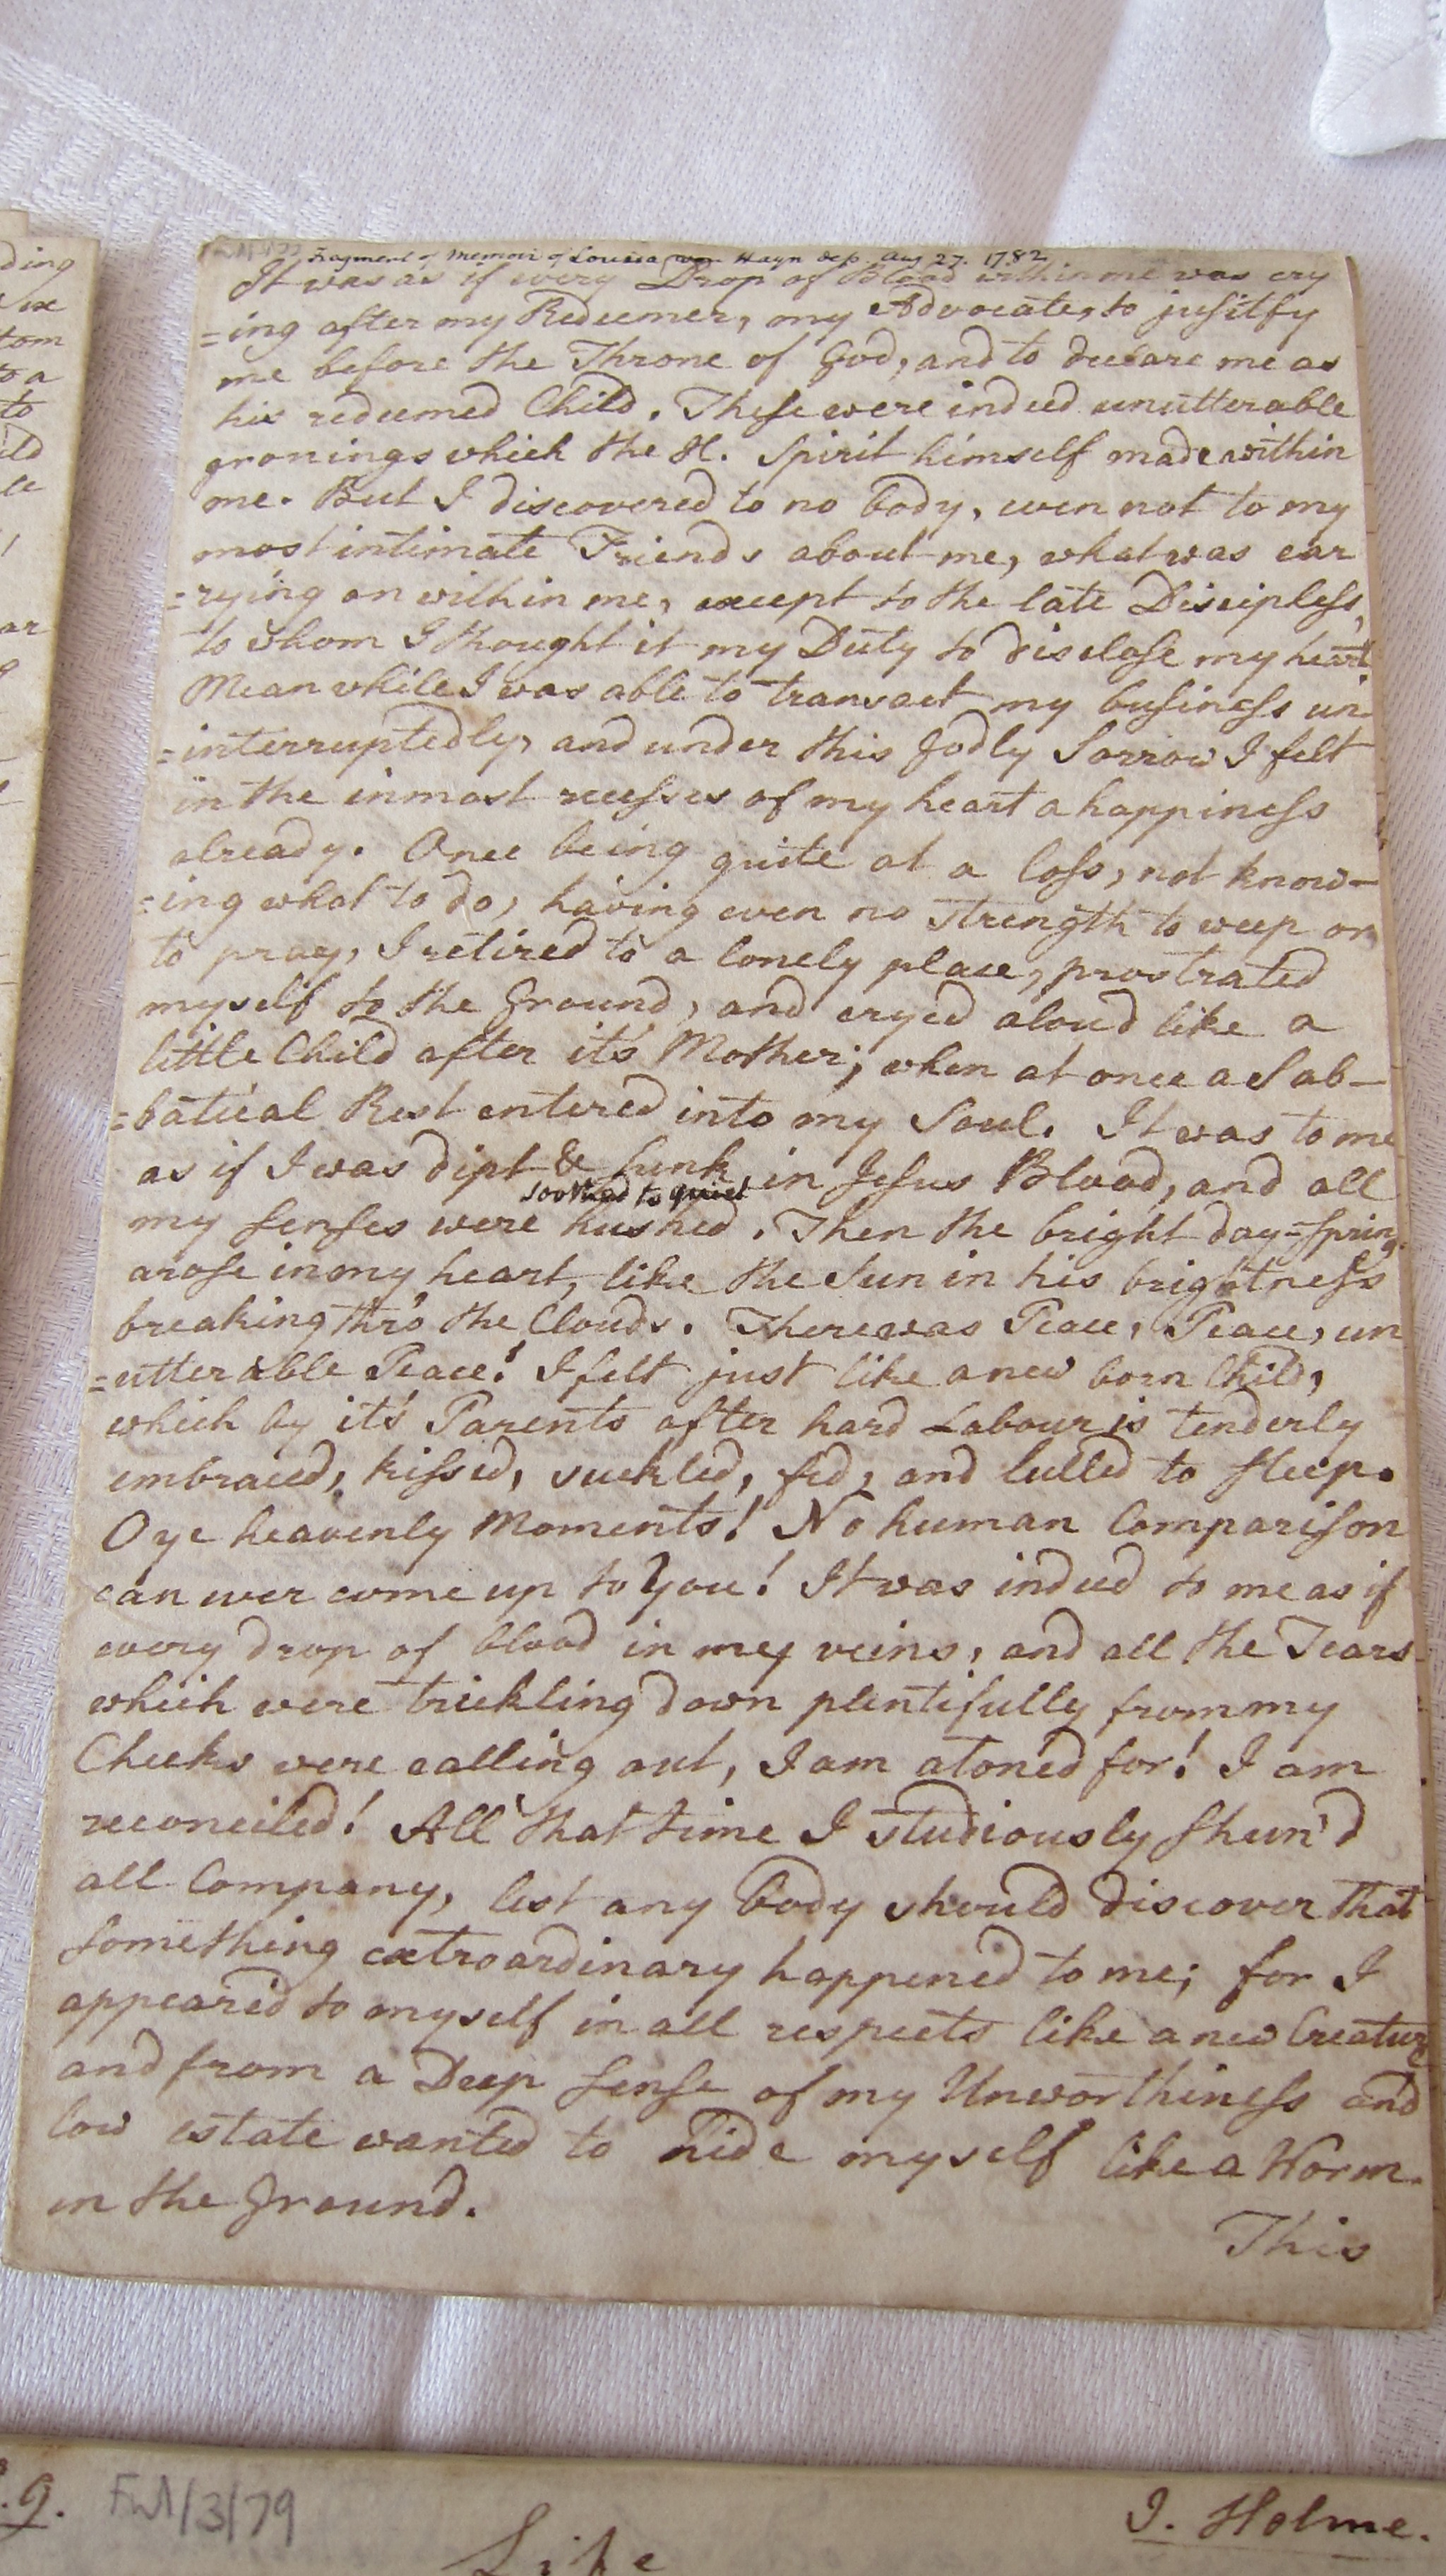 ding
ix
tom
to a
to
ild
le
!
ar
g
Fragment of Memoir of Louisa von Hayn dep. Aug 27. 1782
It was as if every Drop of Blood within me was cry
=ing after my Redeemer, my Advocate, to justify
me before the Throne of God, and to declare me as
his redeemed Child. These were indeed unutterable
gronings which the H. Spirit himself made within
me. But I discovered to no body, even not to my
most intimate Friends about me, what was car
=rying on within me, except to the late Discipless,
to whom I thought it my Duty to disclose my heart.
Mean while I was able to transact my business un
=interruptedly, and under this Godly Sorrow I felt
in the inmost recesses of my heart a happiness
already. Once being quite at a loss, not know-
=ing what to do, having even no strength to weep or
to pray, I retired to a lonely place, prostrated
myself to the Ground, and cryed aloud like a
little Child after it's Mother; when at once a Sab-
=batical Rest entered into my Soul. It was to me
as if I was dipt & sunk in Jesus Blood, and all
soothed to quiet
my senses were hushed. Then the bright day=spring
arose in my heart, like the Sun in his brightness
breaking thro' the Clouds. There was Peace, Peace, un
=utterable Peace! I felt just like a new born Child,
which by it's Parents after hard Labour is tenderly
embraced, kissed, suckled, fed, and lulled to sleep.
O ye heavenly Moments! No human Comparison
can ever come up to You! It was indeed to me as if
every drop of blood in my veins, and all the Tears
which were trickling down plentifully from my
Cheeks were calling out, I am atoned for! I am
reconciled! All that time I studiously shun'd
all Company, lest any body should discover that
something extroardinary happened to me; for I
appeared to myself in all respects like a new Creature
and from a Deep sense of my Unworthiness and
low estate wanted to hide myself like a Worm
in the Ground.
This
.9.
FM/3/79
Life
J. Holme.